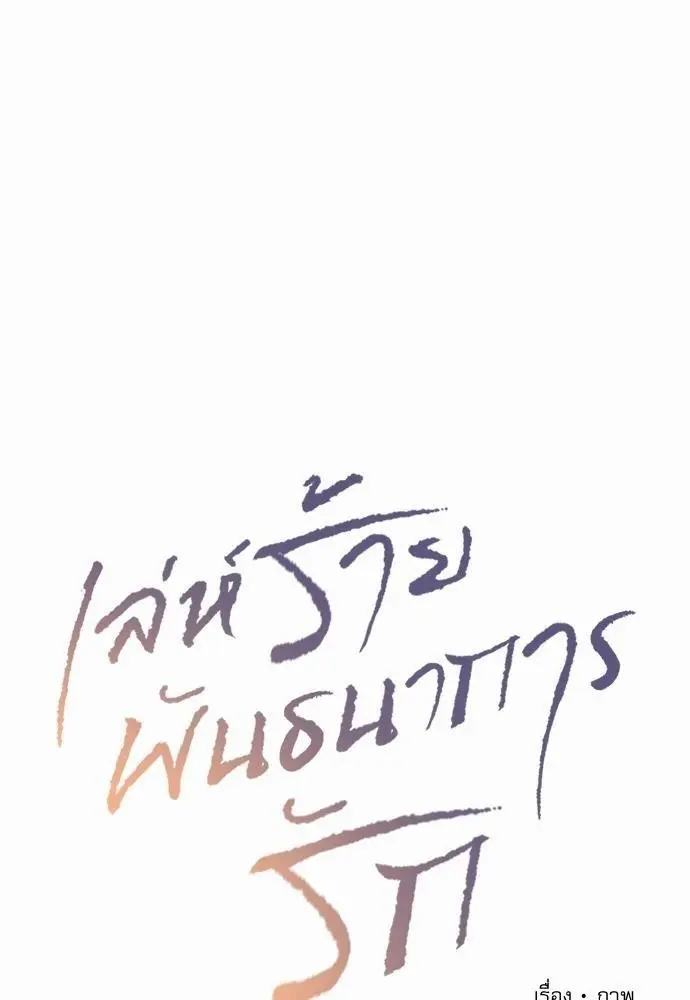 เล่ห์ร้าย
พันธนาการ
รัก
เรื่อง • ภาพ